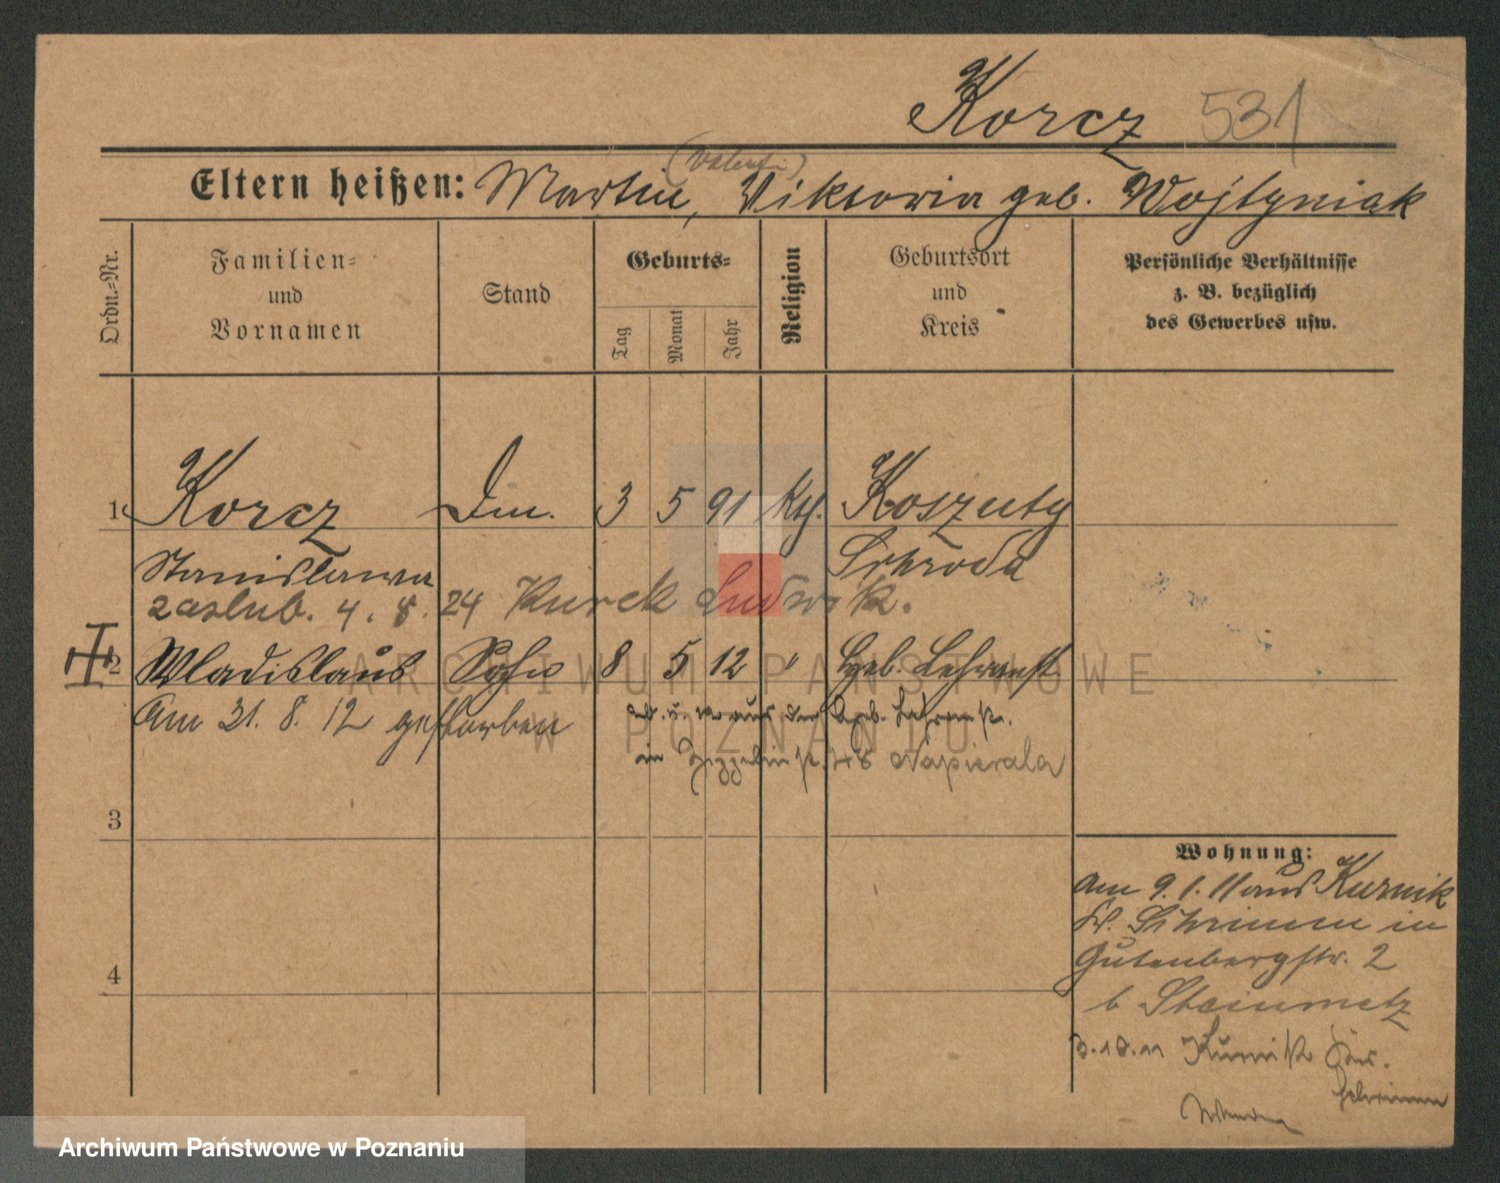 Korcz 531
(Valentin)
Eltern heißen: Martin, Viktoria geb. Wojtyniak
Ordn.-Nr.
Familien- und Vornamen
Stand
Geburts-
Tag Monat Jahr
Religion
Geburtsort und Kreis
Persönliche Verhältnisse
z. B. bezüglich
des Gewerbes usw.
1 Korcz Dm. 3 5 91 Kth. Koszuty
Stanislawa Schroda
zaślub. 4. 8. 24 Kurek Ludwik.
2 Wladislaus Sohn 8 5 12 " Geb. Lehranst
Am 31. 8. 12 gestorben
aus der Geb. Lehranst.
in Zeppelinstr. Napierala
3
4
Wohnung:
Am 9. 1. 11 aus Kurnik
Kr. Schrimm in
Gutenbergstr. 2
b Steinmetz
3.10.11 Kurnik Krs.
Schrimm
ARCHIWUM PAŃSTWOWE
W POZNANIU
Archiwum Państwowe w Poznaniu